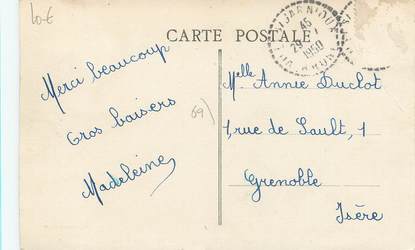 10-€
CARTE POSTALE
Merci beaucoup
Gros baisers
Madeleine
69)
45
29 - 1
1950
Melle Annie Duclot
1, rue de Sault, 1
Grenoble
Isère